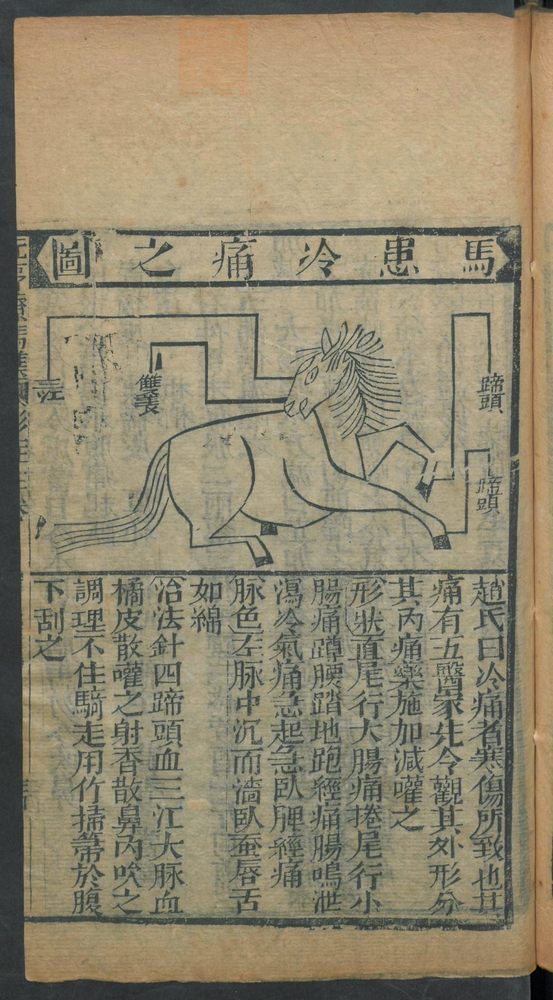 馬患冷痛之圖
蹄頭
蹄頭
雙
三江
趙氏曰冷痛者寒傷所致也其
痛有五醫家先令觀其外形分
其內痛藥施加減嚾之
形狀直尾行大腸痛捲尾行小
腸痛蹲腰踏地跑經痛腸鳴泄
瀉冷氣痛急起急臥脾經痛
脉色左脉中沉而濇臥蚕唇舌
如綿
治法針四蹄頭血三江大脉血
橘皮散嚾之射香散鼻內吹之
調理不住騎走用竹掃箒於腹
下刮之